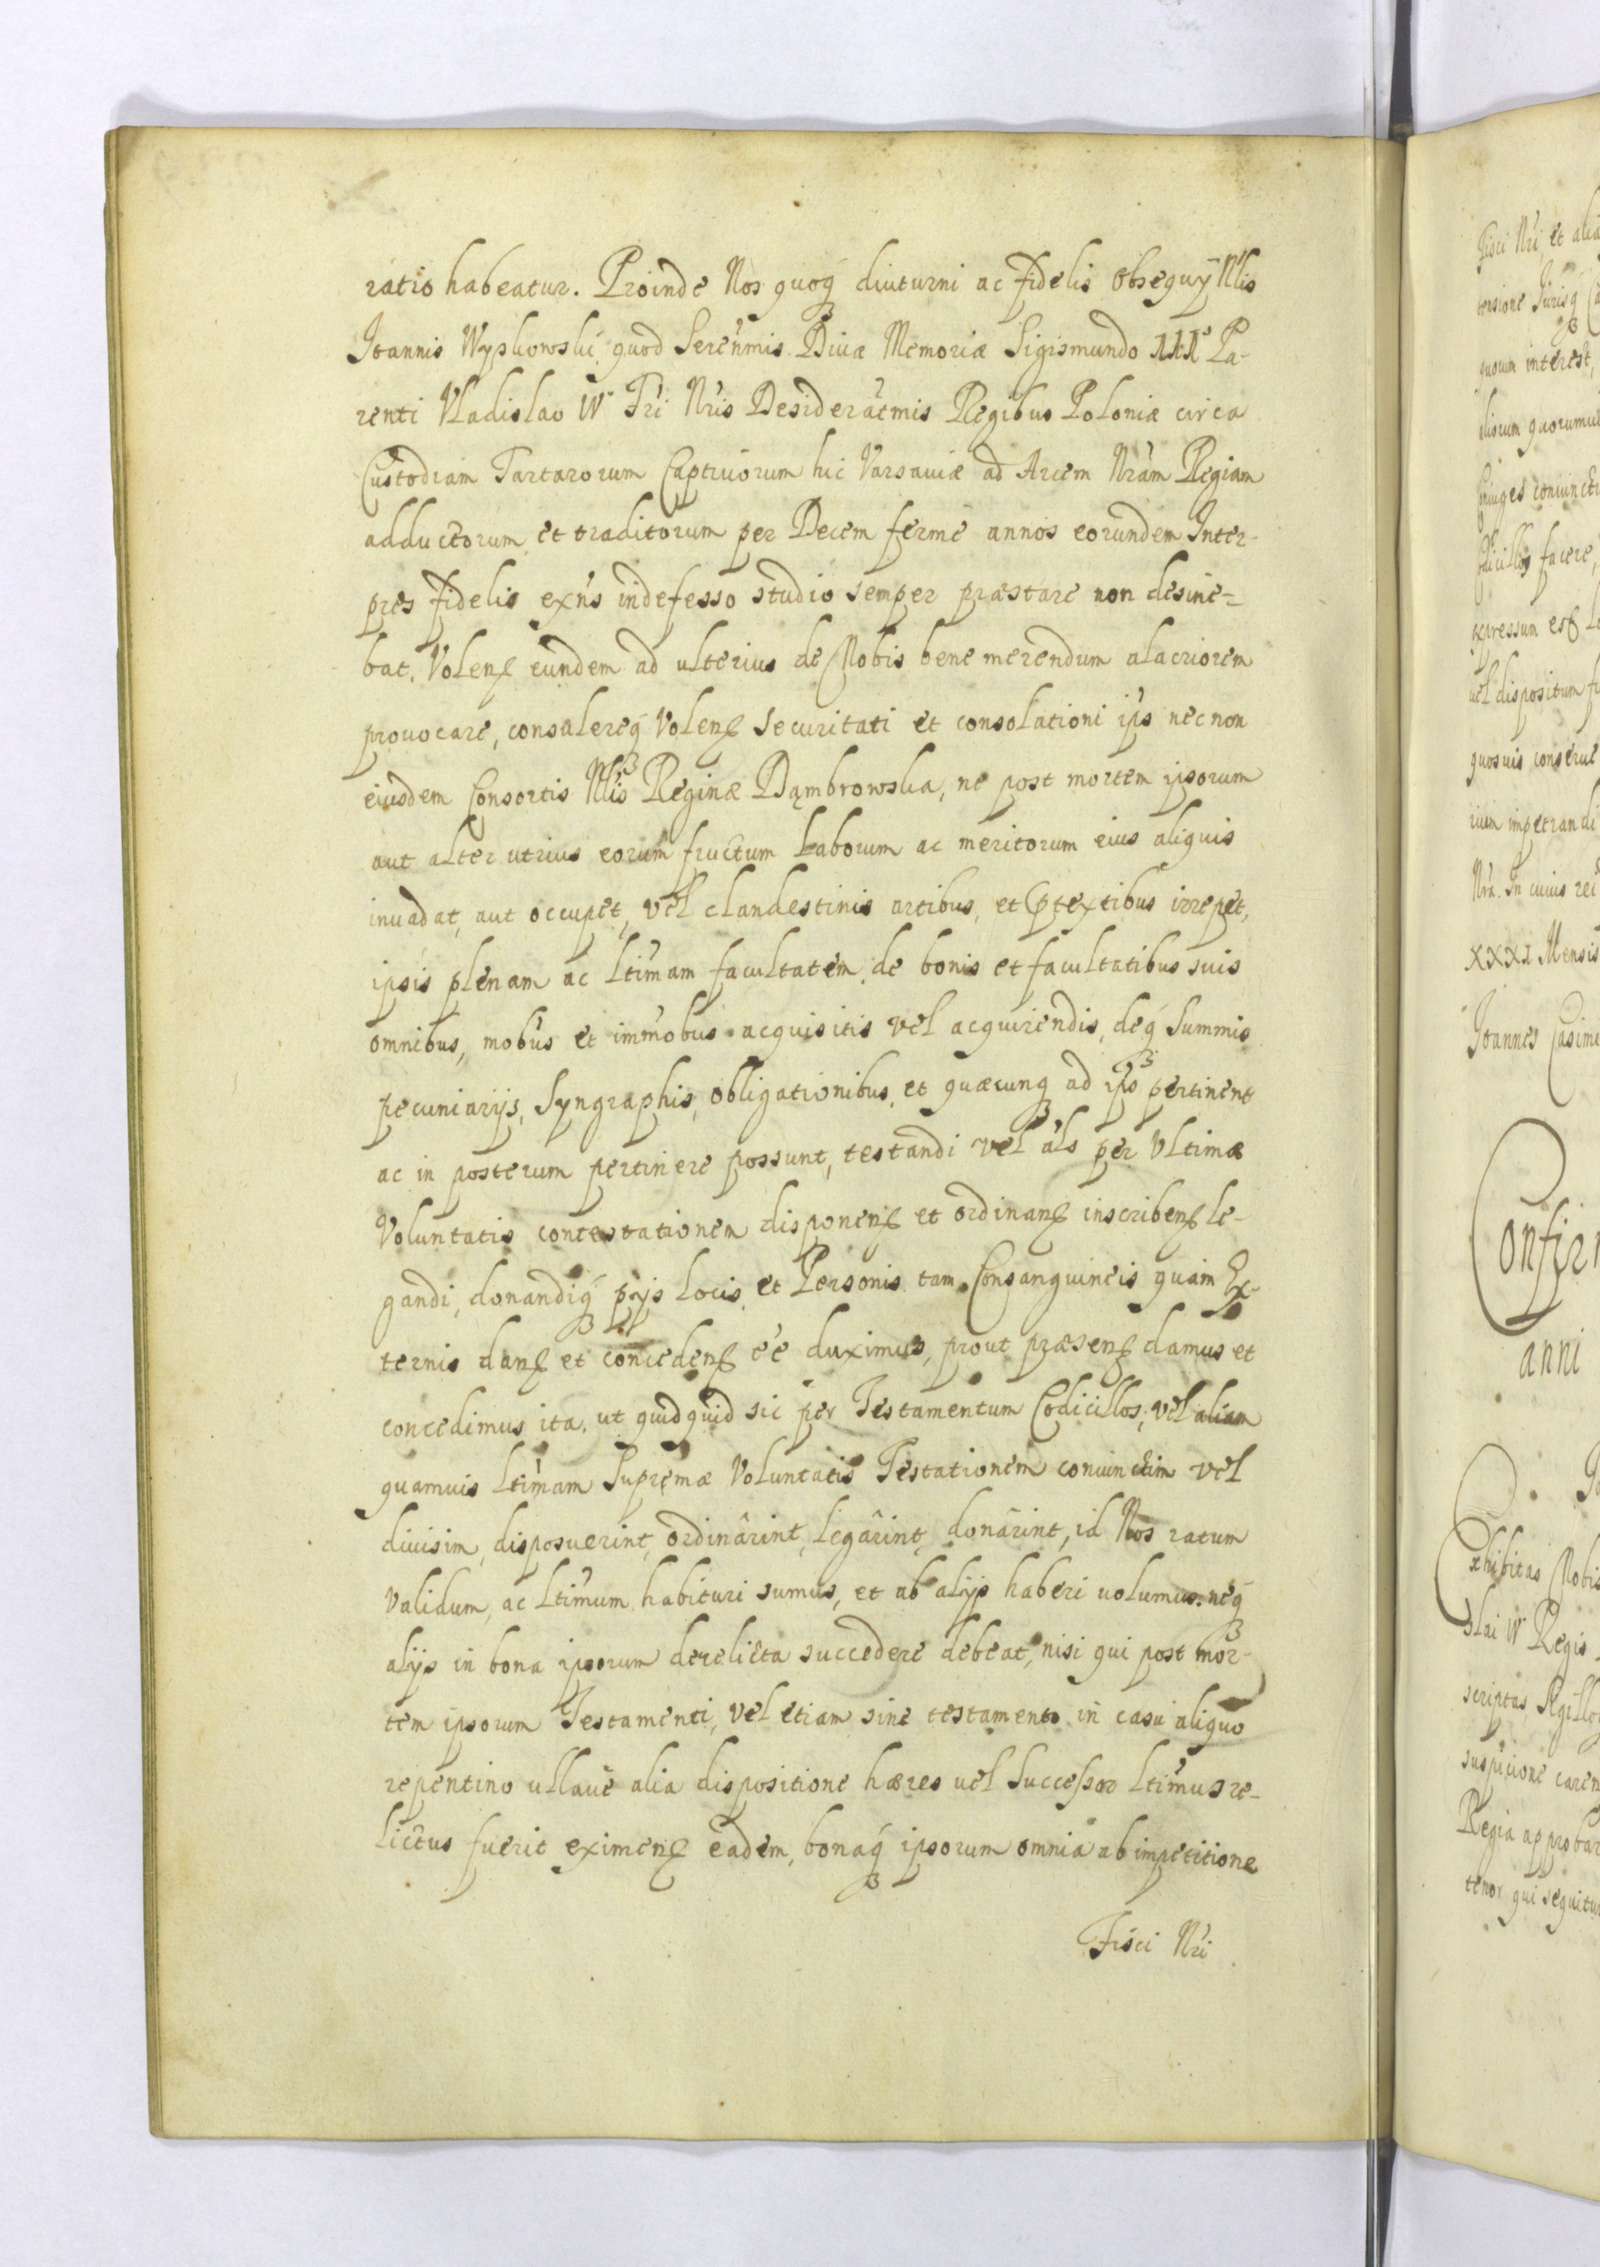 ratio habeatur. Proinde Nos quoq́ diuturni ac fidelis obsequÿ Nlis
Joannis Wypkowski, quod Serenmis Diuæ Memoriæ Sigismundo III Pa-
renti Vladislao IV Fri Nris Desideratmis Regibus Poloniæ circa
Custodiam Tartarorum Captiuorum hic Varsauiæ ad Arcem Nram Regiam
adductorum et traditorum per Decem ferme annos eorundem Inter-
pres fidelis exns indefesso studio semper præstare non desine=
bat. Volenſ eundem ad ulterius de Nobis bene merendum alacriorem
prouocare, consulereq́ Volenſ securitati et consolationi ips necnon
eiusdem Consortis Nlis Reginæ Dąmbrowska, ne post mortem ipsorum
aut alterutrius eorum fructum Laborum ac meritorum eius aliquis
inuadat, aut occupet, vel clandestinis artibus, et Ptextibus irrepet,
ipsis plenam ac Ltimam facultatem, de bonis et facultatibus suis
omnibus, mobus et immobus acquisitis vel acquirendis, deq́ Summis
pecuniarijs, Syngraphis, obligationibus, et quæcunq́ ad ips pertinent
ac in posterum pertinere possunt, testandi vel als per Vltimæ
Voluntatis contestationem disponenſ et ordinanſ inscribenſ le-
gandi, donandiq́ pijs Locis et Personis tam Consanguineis quam Ex-
ternis danſ et concedenſ ee duximus, prout præsenſ damus et
concedimus ita, ut quidquid sic per Testamentum Codicillos, vel aliam
quamuis Ltimam Supremæ Voluntatis Testationem coniunctim vel
diuisim, disposuerint, ordinârint, legârint, donârint, id Nos ratum
validum, ac Ltimum habituri sumus, et ab alijs haberi uolumus. neq́
alijs in bona ipsorum derelicta succedere debeat, nisi qui post mor-
tem ipsorum Testamenti, vel etiam sine testamento in casu aliquo
repentino ullaue alia dispositione hæres uel Successor Ltimus re-
lictus fuerit eximenſ eadem, bonaq́ ipsorum omnia ab impetitione
Fisci Nri
Fisci Nri et alia
quorum interest,
facere,
expressum est
uel dispositum
quosuis
rium impetrandi
Nræ. In cuius rei
XXXI Mensis
Joannes Casimi
Confir
anni
Exhibitas Nobis
slai IV Regis
scriptas Sigillo
suspicione caren
Regia approbar
tenor qui sequitur